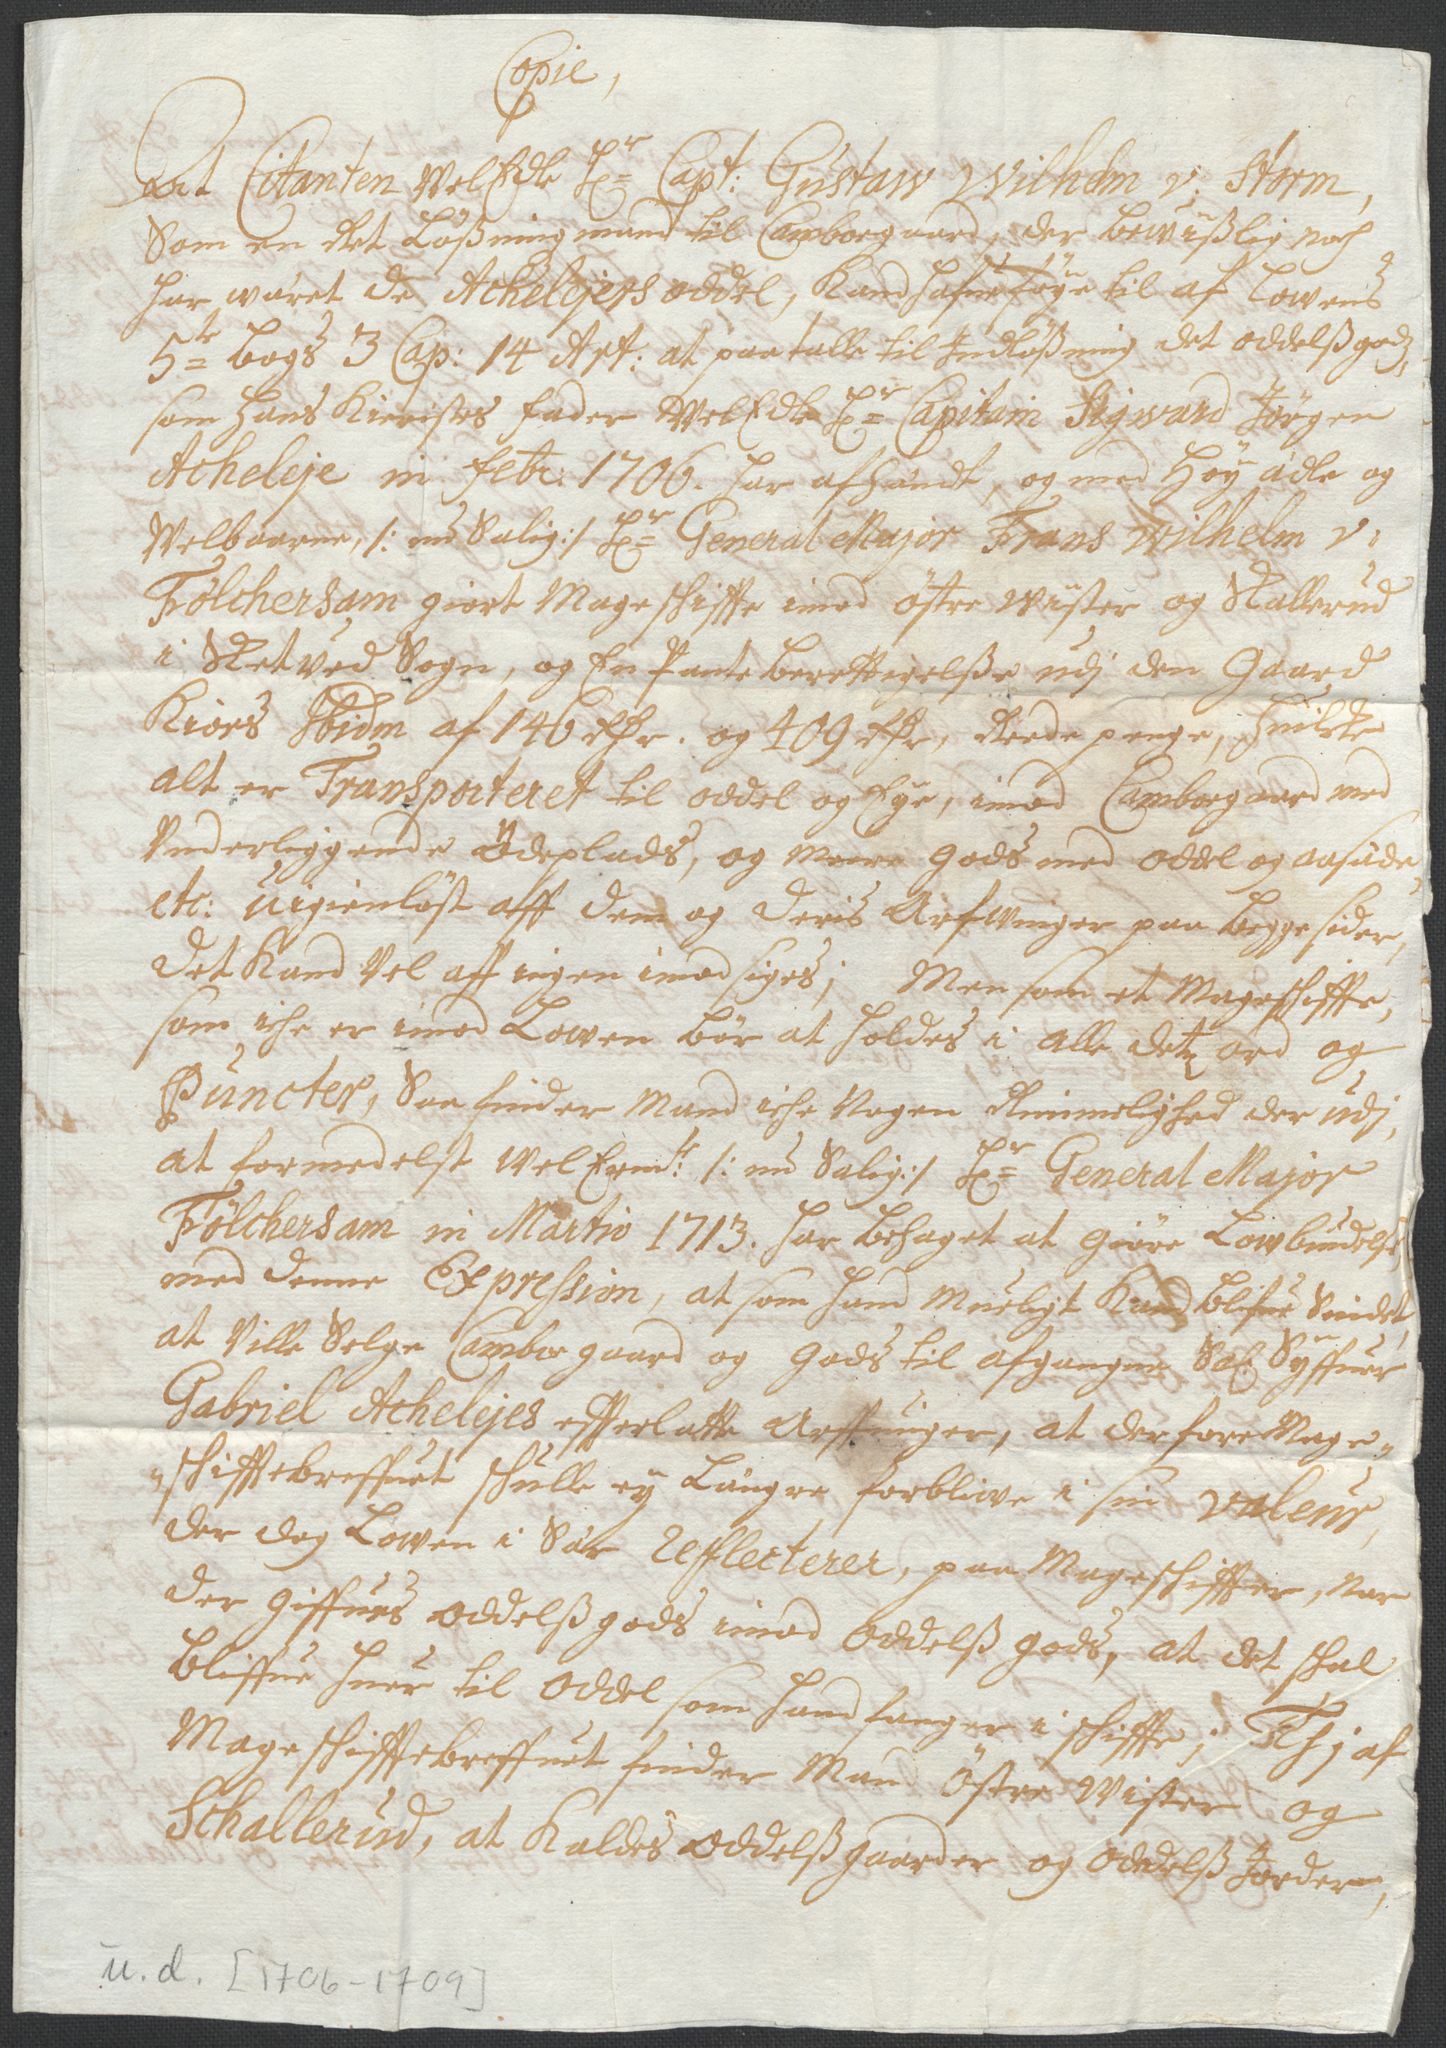 Copie,
At Citanten WelEdle Hr Capt: Gustaw Wilhelm v: Storm,
Som en Ret Løßningsmand til Camboegaard, der bewüßlig noch
har wæret de Achelejers oddel, Kand hafue føye til af Lowens
5te bogs 3 Cap: 14 Art: at paatalle til Indløßning det oddelßgods,
som Hans Kieristes fader WelEdle Hr Capitain Sigward Jørgen
Acheleje in Febr: 1706. har afhændt, og med Høy ædle og
Welbaarne, /: nu Salig:/ Hr General Major Frans Wilhelm v:
Fölchersam giort Mageschiffte imod Østre Wister og Skallerud
i Retved Sogn, og En Pante berettigelße udj den Gaard
Kiøes Ibidm af 146 rdr. og 409 rdr, Reede penge, huilcket
alt er Transporteret til oddel og Eye, imod Camboegaard med
Underliggende Ödeplads, og meere Gods med oddel og aasæde
etc: uigienløst aff dem og deris Arfwinger paa begge sider,
det Kand Vel aff ingen imodsiges; Men som et Mageschiffte,
som iche er imod Lowen bør at holdes i alle detz ord og
Puncter, Saa finder Mand iche Nogen Rimmelighed der udj,
at formedelst WelErmte: /: nu Salig:/ Hr General Major
Fölchersam in Martio 1713. har behaget at giøre Lowbudelße
med denne Expression, at som hand Mueligt Kand blifue Sindet,
at Ville Selge Camboegaard og Gods til afgangne Sal: Syffuer
Gabriel Achelejes effterlatte Arffuinger, at derfore Mage-
-schifftebreffuet schulle ey Længre forbliwe i sin valeur,
der dog Lowen i Sær reflecterer, paa Mageschiffter, naar
der Giffues oddelß gods imod Oddelß gods, at det schal
bliffue huer til Oddel som hand fanger i schiffte; Thj af
Mageschifftebreffuet finder Man Østre Wister og
Schallerud, at Kaldes oddelß gaarder og oddelß Jorder,
u. d. [1706-1709]